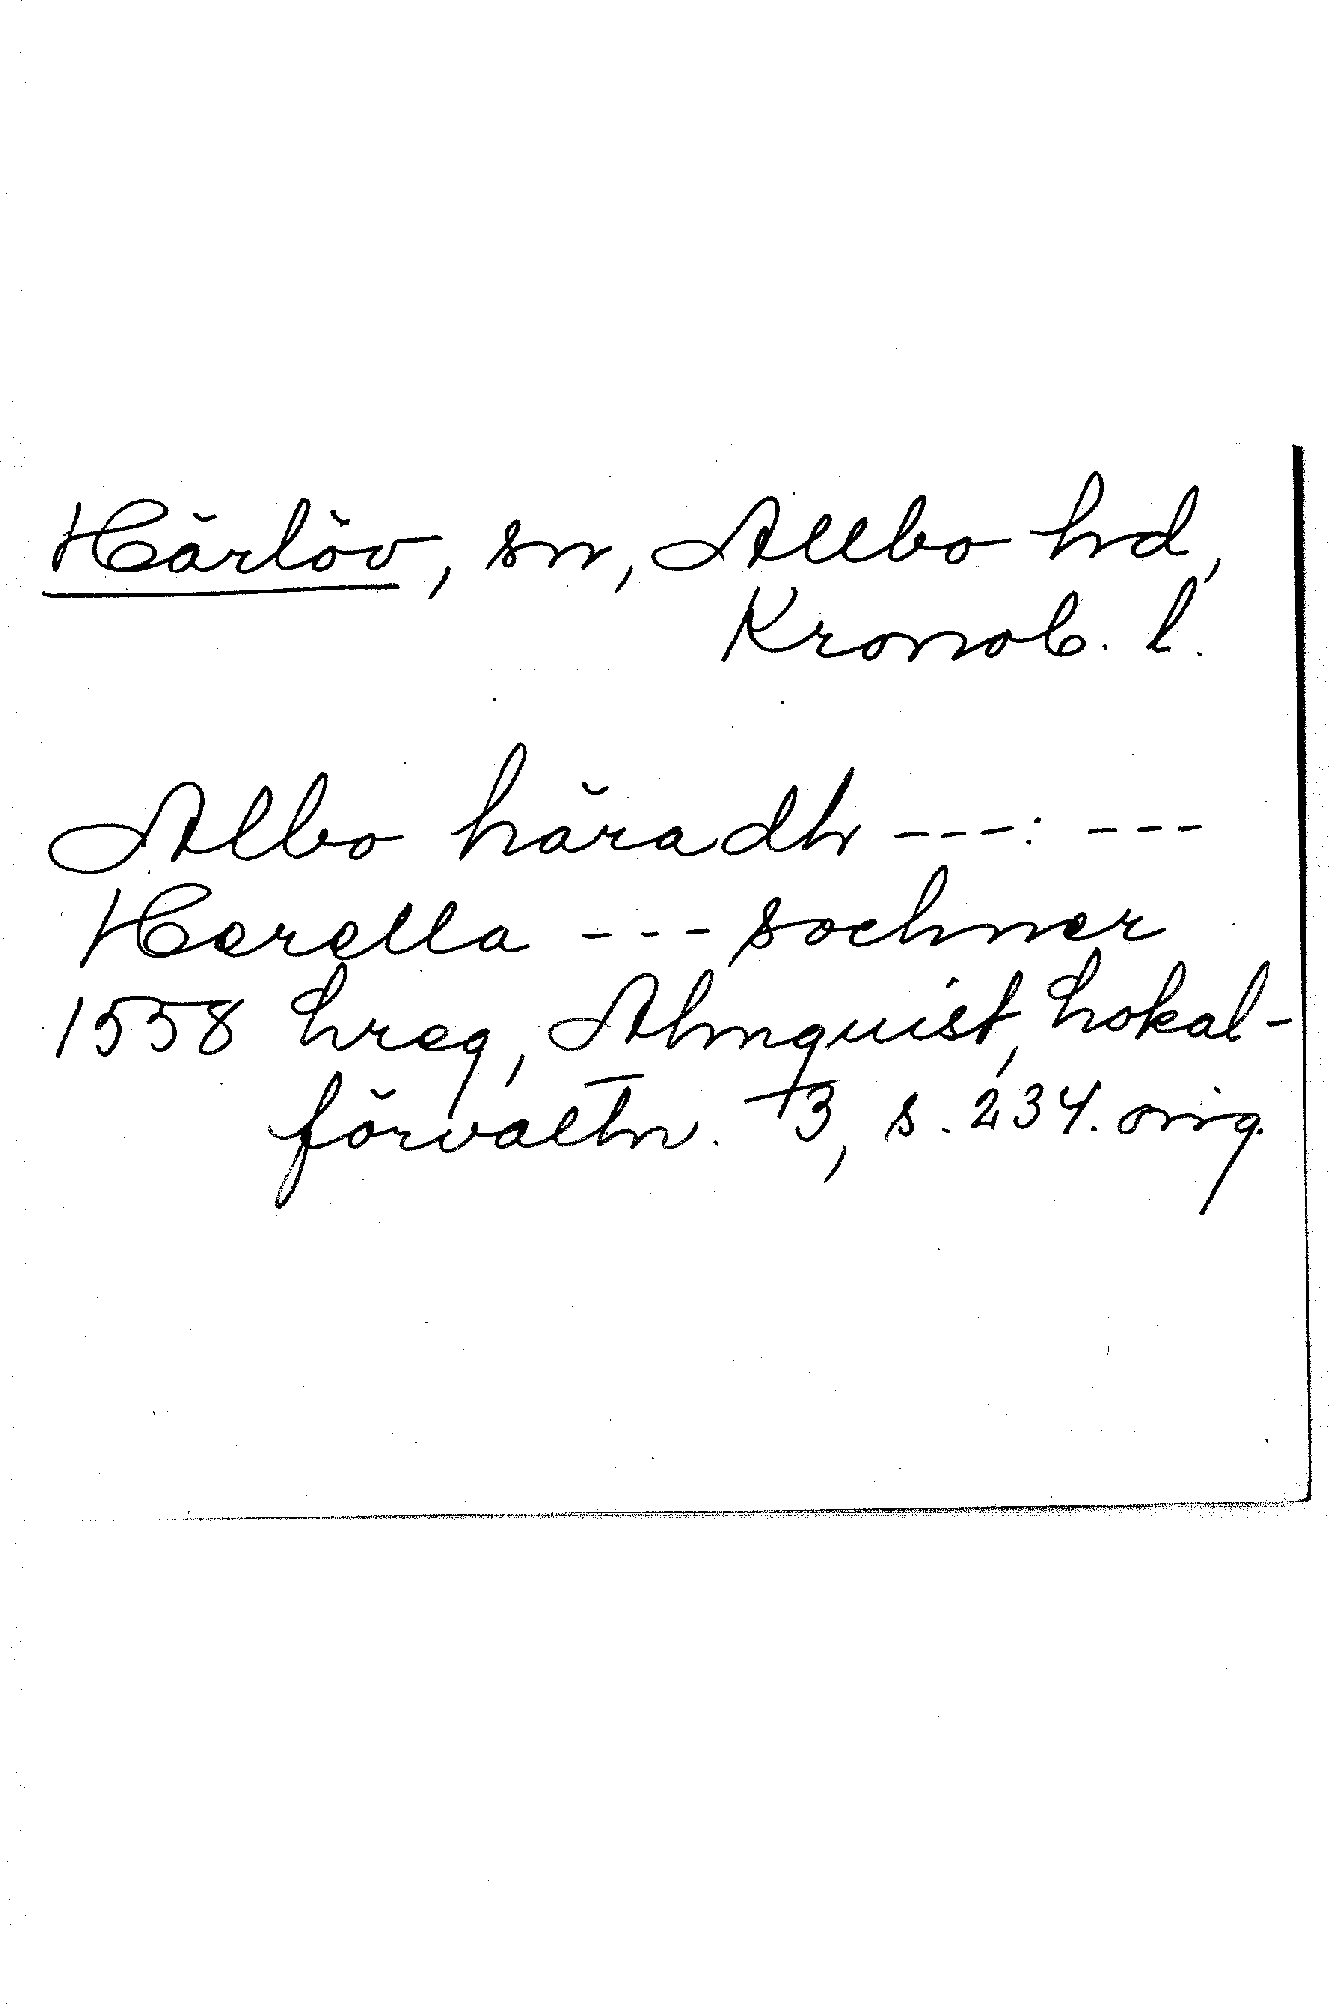 Härlöv, sn, Allbo hd,
Kronob. l.
Albo häradh ---:---
Herella --- sochner
1558 hreg, Almquist, Lokal-
förvaltn. 3, s. 234. orig.